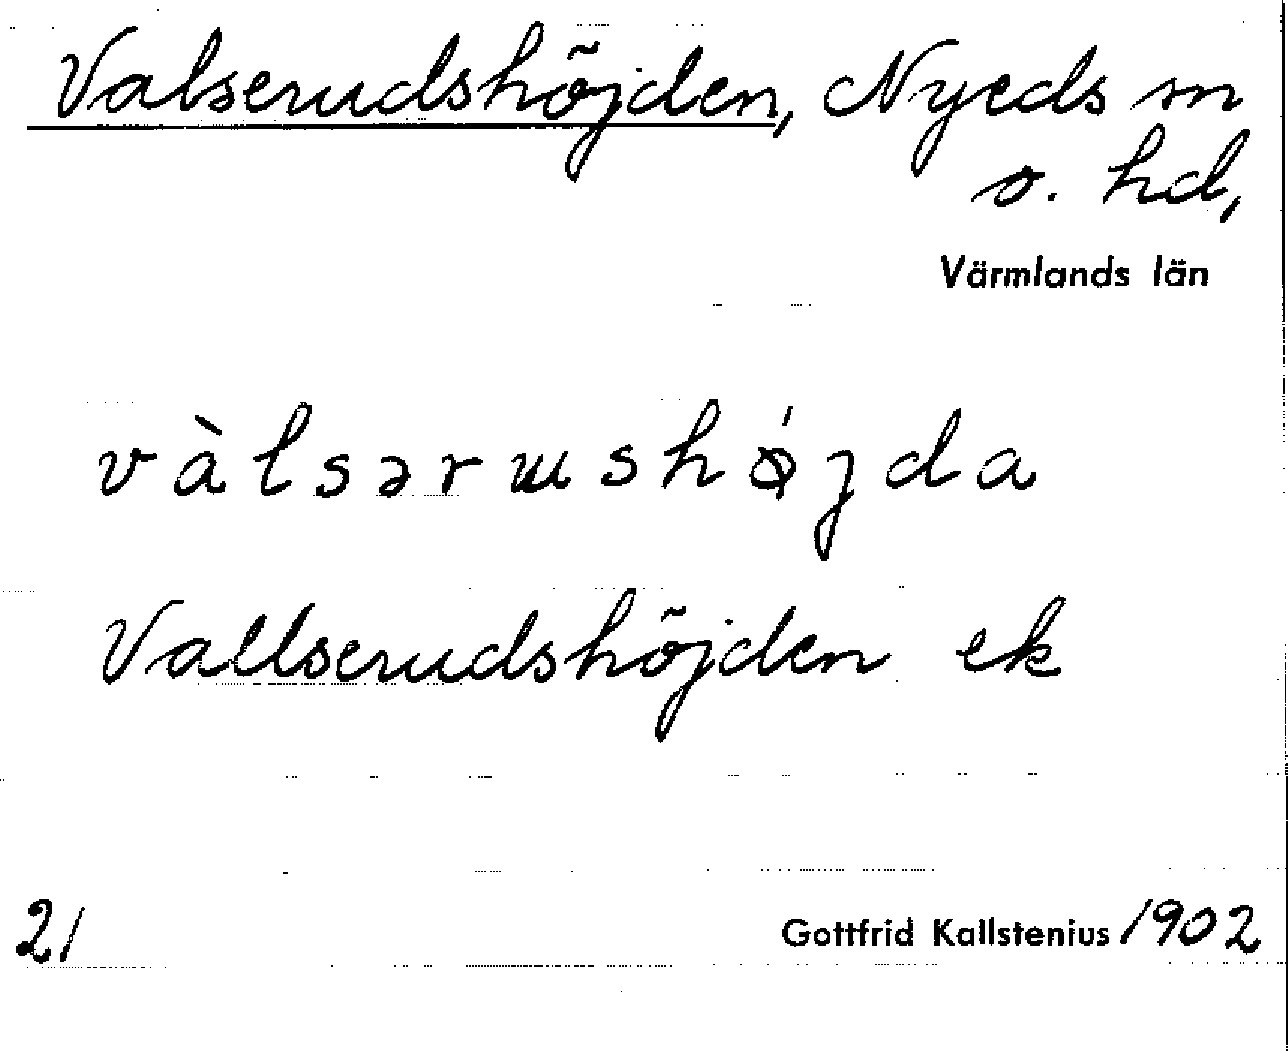 Valserudshöjden, Nyeds sn
o. hd,
Värmlands län
vàlsərɯshǿjda
Vallserudshöjden ek
21
Gottfrid Kallstenius 1902